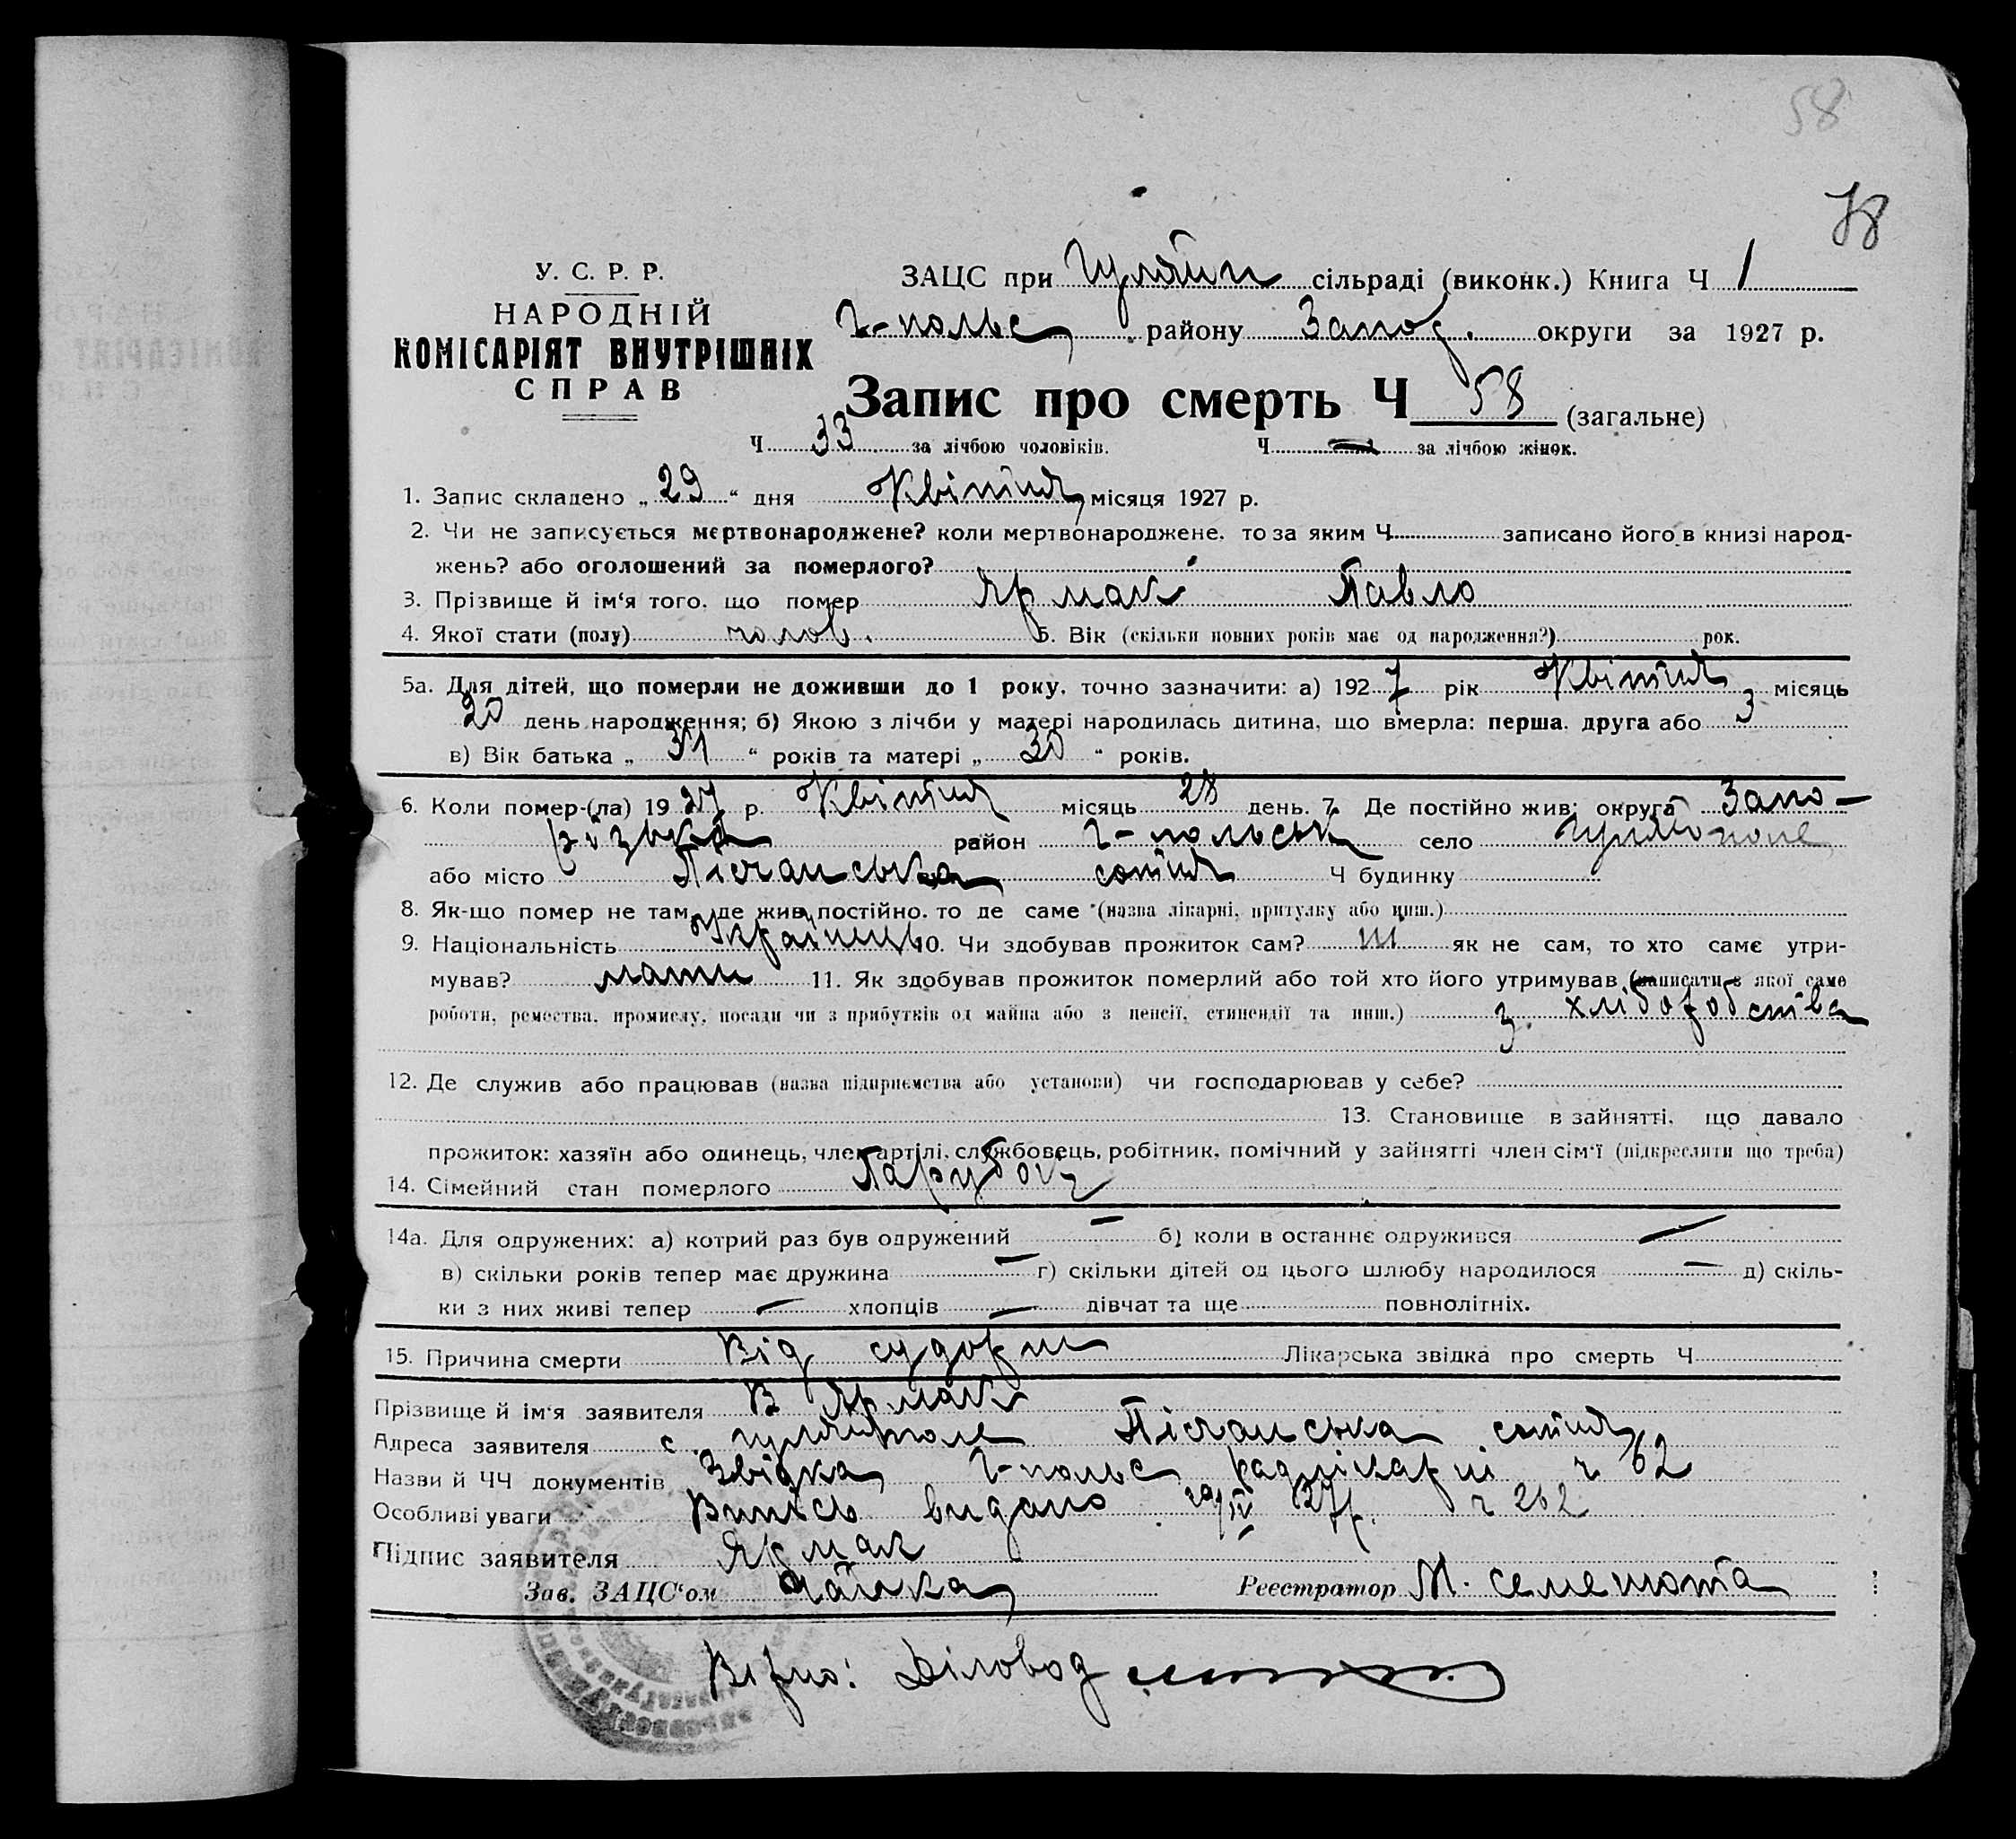 58
78
У. С. Р. Р.
НАРОДНІЙ
КОМІСАРІЯТ ВНУТРІШНІХ
СПРАВ
ЗАЦС при Гуляйп сільраді (виконк.) Книга Ч 1
Г-польс району Запор. округи за 1927 р.
Запис про смерть Ч 58 (загальне)
Ч 33 за лічбою чоловіків. Ч — за лічбою жінок.
1. Запис складено „ 29 “ дня Квітня місяця 1927 р.
2. Чи не записується мертвонароджене? коли мертвонароджене, то за яким Ч записано його в книзі народ-
жень? або оголошений за померлого?
3. Прізвище й ім‘я того, що помер Ярмак Павло
4. Якої стати (полу) чолов. 5. Вік (скільки повних років має од народження?) рок.
5а. Для дітей, що померли не доживши до 1 року, точно зазначити: а) 192 7 рік Квітня місяць
20 день народження; б) Якою з лічби у матері народилась дитина, що вмерла: перша, друга або 3
в) Вік батька „ 31 “ років та матері „ 30 “ років.
6. Коли помер-(ла) 19 27 р. Квітня місяць 28 день. 7. Де постійно жив: округа Запо-
різька район Г-польськ село Гуляйполе
або місто Пісчанська сотня Ч будинку
8. Як-що помер не там, де жив постійно, то де саме (назва лікарні, притулку або инш.)
9. Національність Українець 10. Чи здобував прожиток сам? ні як не сам, то хто саме утри-
мував? мати 11. Як здобував прожиток померлий або той хто його утримував (написати з якої саме
роботи, ремества, промислу, посади чи з прибутків од майна або з пенсії, стипендії та инш.) З хліборобства
12. Де служив або працював (назва підприємства або установи) чи господарював у себе?
13. Становище в зайнятті, що давало
прожиток: хазяїн або одинець, член артілі, службовець, робітник, помічний у зайнятті член сім‘ї (підкреслити що треба)
14. Сімейний стан померлого Парубок
14а. Для одружених: а) котрий раз був одружений — б) коли в останнє одружився —
в) скільки років тепер має дружина — г) скільки дітей од цього шлюбу народилося — д) скіль-
ки з них живі тепер — хлопців — дівчат та ще повнолітніх.
15. Причина смерти Від судорги Лікарська звідка про смерть Ч
Прізвище й ім‘я заявителя В Ярмак
Адреса заявителя с. Гуляйполе Пісчанська сотня
Назви й ЧЧ документів Звідка Г-польс радлікарні ч 62
Особливі уваги Випісь видано 29/IV 27р. ч 262
Підпис заявителя Ярмак
Зав. ЗАЦС‘ом Чайка Реєстратор М. Семенота
Вірно: Діловод